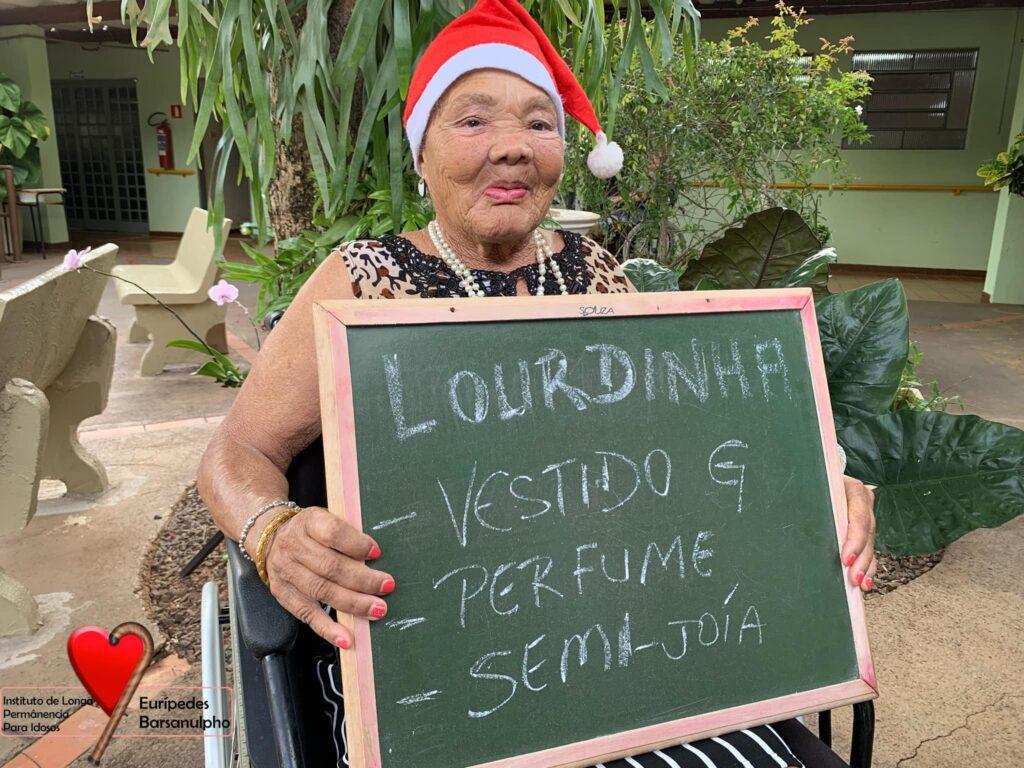 SOUZA
LOURDINHA
- VESTIDO G
- PERFUME
- SEMI-JOÍA
Instituto de Longa
Permânencia
Para Idosos
Eurípedes
Barsanulpho